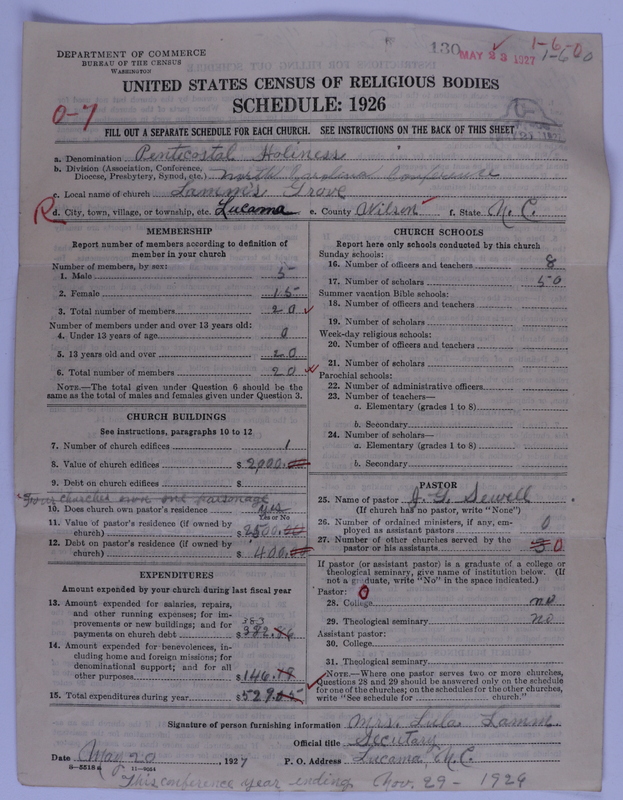 130 MAY 23 1927 1-6-0
1-6-00
DEPARTMENT OF COMMERCE
BUREAU OF THE CENSUS
WASHINGTON
UNITED STATES CENSUS OF RELIGIOUS BODIES
SCHEDULE: 1926
0-7
FILL OUT A SEPARATE SCHEDULE FOR EACH CHURCH. SEE INSTRUCTIONS ON THE BACK OF THIS SHEET
a. Denomination Pentecostal Holiness
b. Division (Association, Conference, Diocese, Presbytery, Synod, etc.) North Carolina Conference
c. Local name of church Lamm's Grove
R d. City, town, village, or township, etc. Lucama e. County Wilson f. State N. C.
MEMBERSHIP
Report number of members according to definition of
member in your church
Number of members, by sex:
1. Male 5
2. Female 15
3. Total number of members 20
Number of members under and over 13 years old:
4. Under 13 years of age 0
5. 13 years old and over 20
6. Total number of members 20
NOTE.—The total given under Question 6 should be
same as the total of males and females given under Question 3.
CHURCH BUILDINGS
See instructions, paragraphs 10 to 12
7. Number of church edifices 1
8. Value of church edifices $ 2000.00
9. Debt on church edifices $
Four churches own one parsonage
10. Does church own pastor's residence yes
Yes or No
11. Value of pastor's residence (if owned by
church) $ 2500.00
12. Debt on pastor's residence (if owned by
church) $ 400.00
EXPENDITURES
Amount expended by your church during last fiscal year
13. Amount expended for salaries, repairs,
and other running expenses; for im-
provements or new buildings; and for 383
payments on church debt $ 382.56
14. Amount expended for benevolences, in-
cluding home and foreign missions; for
denominational support; and for all
other purposes $ 146.49
15. Total expenditures during year $ 529.05
CHURCH SCHOOLS
Report here only schools conducted by this church
Sunday schools:
16. Number of officers and teachers 8
17. Number of scholars 50
Summer vacation Bible schools:
18. Number of officers and teachers
19. Number of scholars
Week-day religious schools:
20. Number of officers and teachers
21. Number of scholars
Parochial schools:
22. Number of administrative officers
23. Number of teachers—
a. Elementary (grades 1 to 8)
b. Secondary
24. Number of scholars—
a. Elementary (grades 1 to 8)
b. Secondary
PASTOR
25. Name of pastor J. G. Sewell
(If church has no pastor, write "None")
26. Number of ordained ministers, if any, em-
ployed as assistant pastors 0
27. Number of other churches served by the
pastor or his assistants 3 0
If pastor (or assistant pastor) is a graduate of a college or
theological seminary, give name of institution below. (If
not a graduate, write "No" in the space indicated.)
Pastor: 0
28. College no
29. Theological seminary no
Assistant pastor:
30. College
31. Theological seminary
NOTE.—Where one pastor serves two or more churches,
Questions 28 and 29 should be answered only on the schedule
for one of the churches; on the schedules for the other churches,
write "See schedule for church."
Signature of person furnishing information Mrs. Lula Lamm
Official title Secutary
Date May 20 1927 P. O. Address Lucama, N. C.
8-5518 a 11-9064
This conference year ending Nov. 29 - 1926